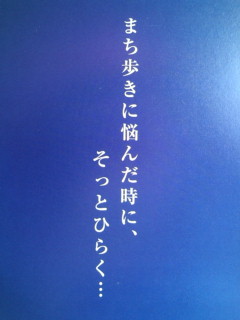 まち歩きに悩んだ時に、
そっとひらく…